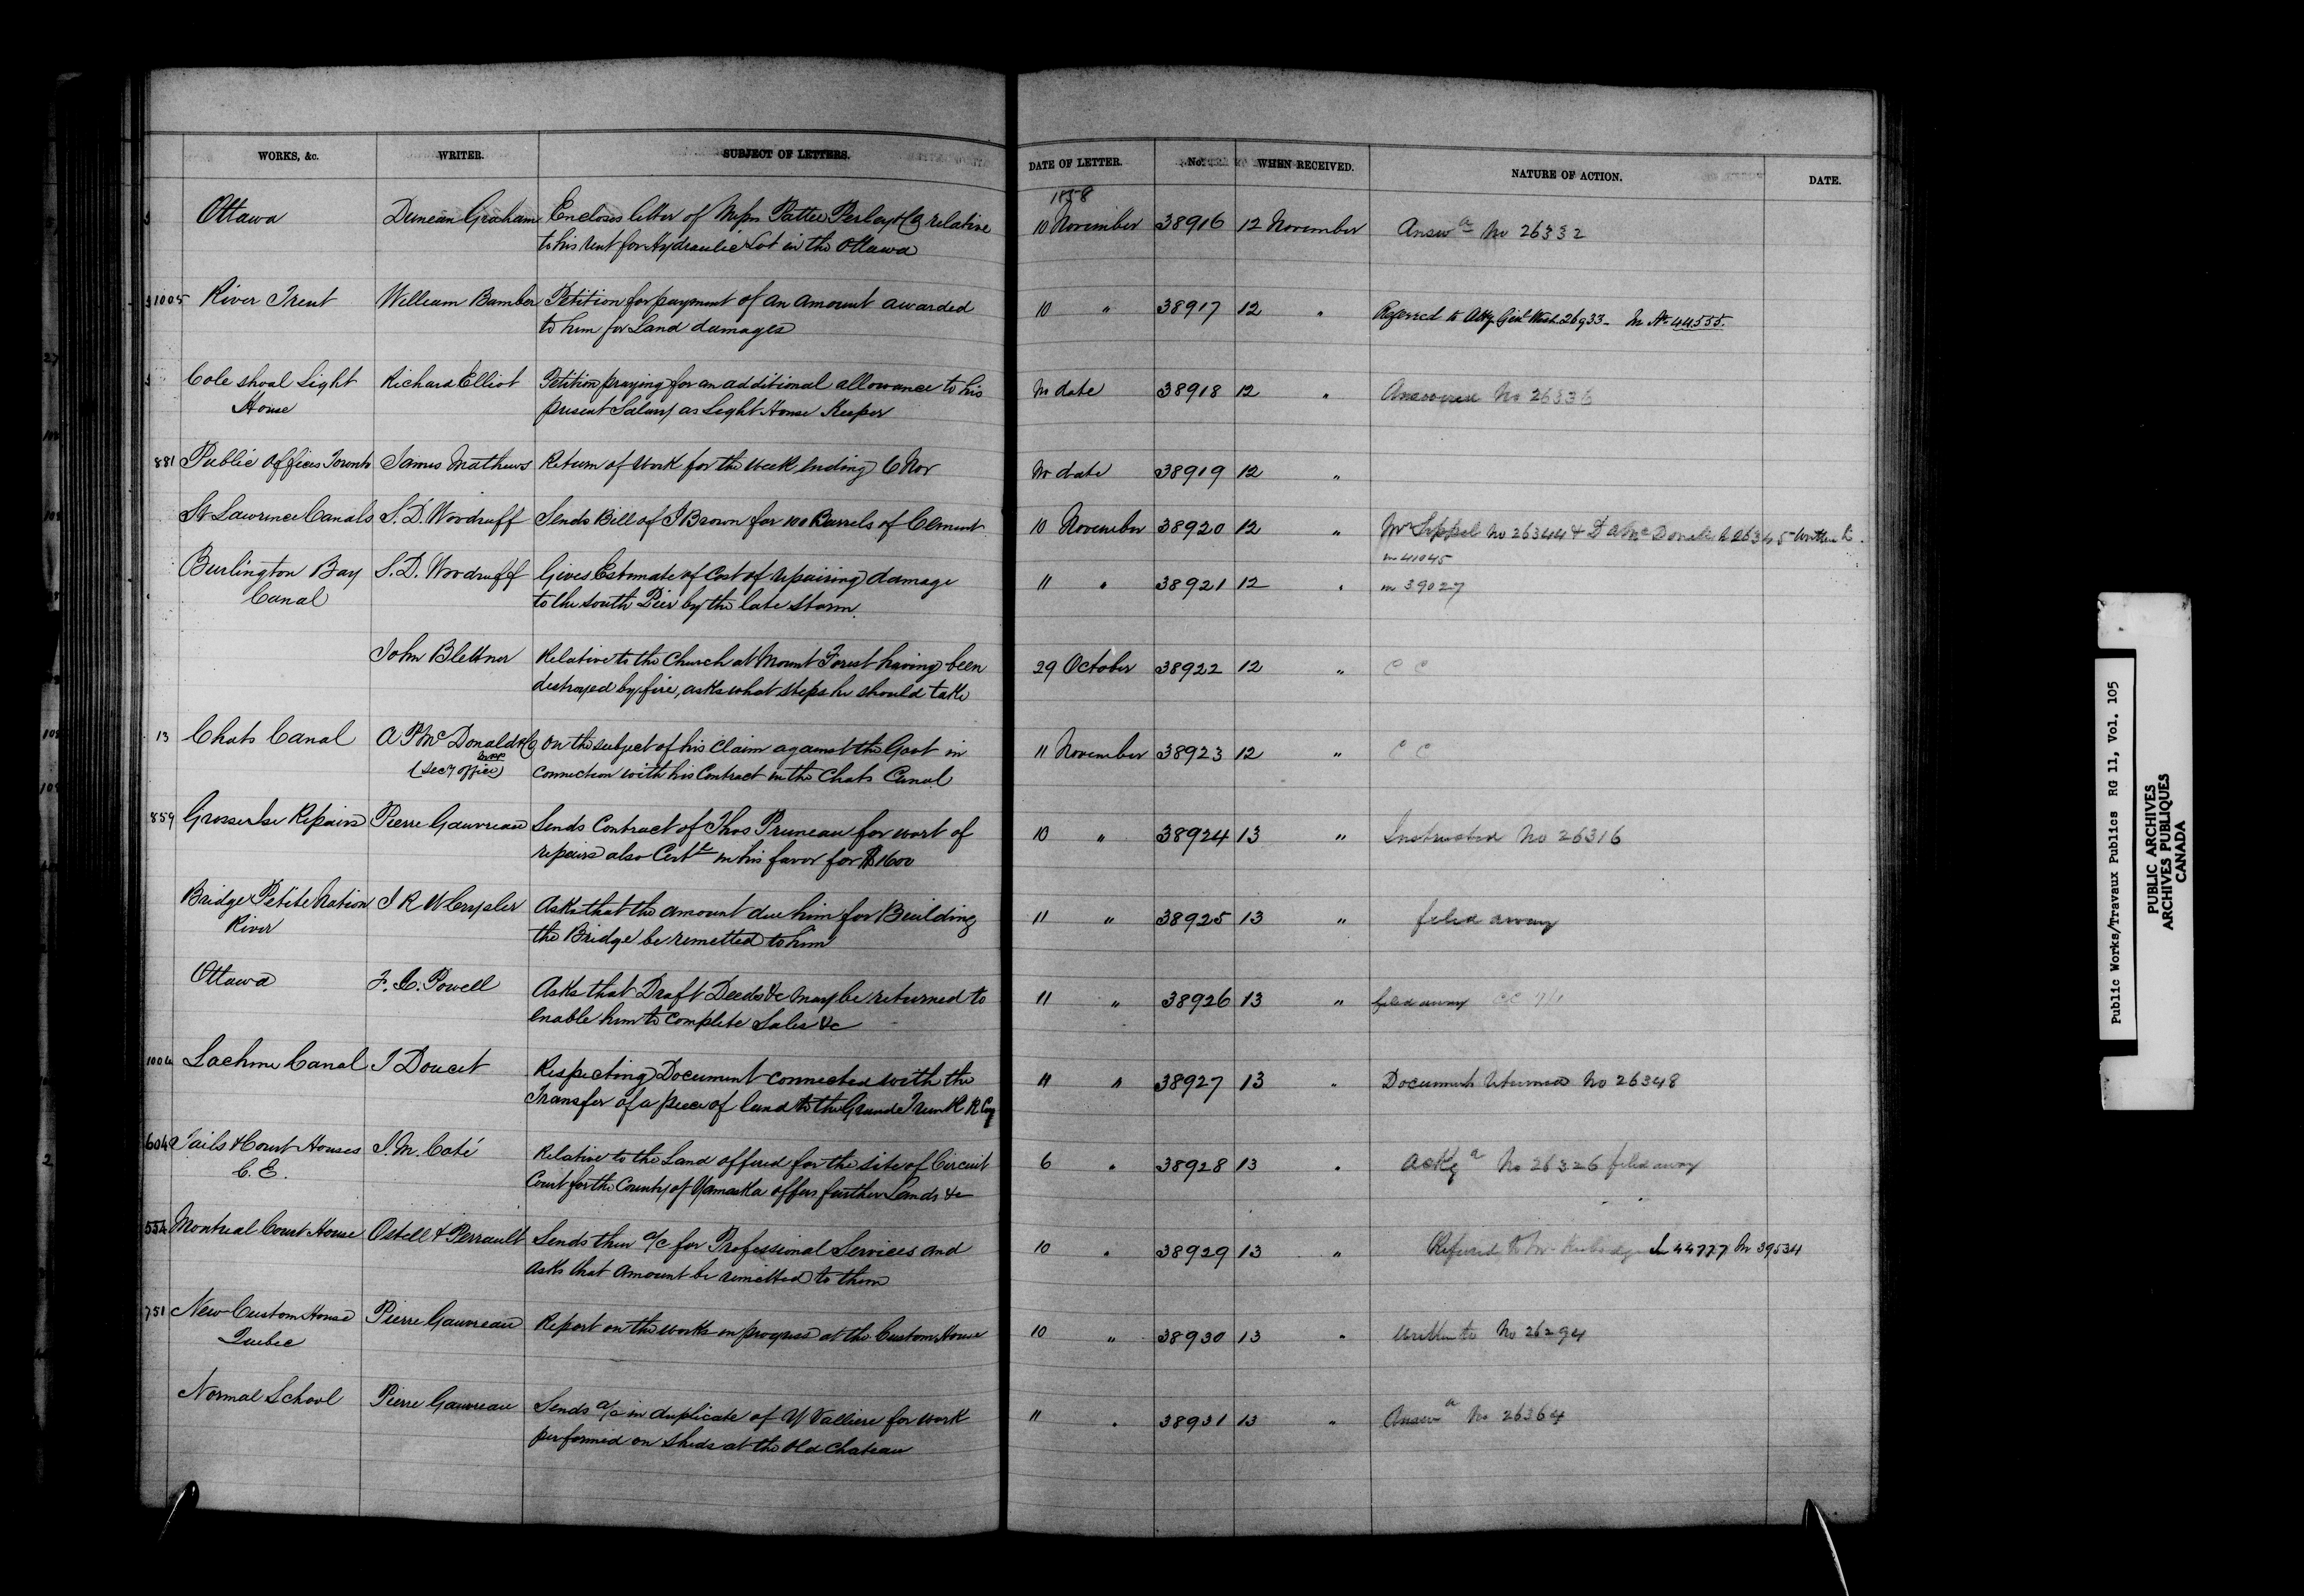 WORKS, &c. WRITER. SUBJECT OF LETTERS. DATE OF LETTER. No. WHEN RECEIVED. NATURE OF ACTION. DATE.
1858
Ottawa Duncan Graham Encloses letter of Messrs Pattee Perley & Co relative 10 November 38916 12 November Answd No 26332
to his rent for Hydraulic Lot in the Ottawa
1005 River Trent William Bamber Petition for payment of an amount awarded 10 " 38917 12 " Referred to Atty Genl West 26933 - In No 44555.
to him for Land damages
Cole shoal Light Richard Elliot Petition praying for an additional allowance to his No date 38918 12 " Answered No 26336
House present Salary as Light House Keeper
881 Public Offices Toronto James Mathews Return of work for the week ending 6 Nov No date 38919 12 "
St Lawrence Canals S. D. Woodruff Sends Bill of J Brown for 100 Barrels of Cement 10 November 38920 12 " Mr Sippel No 26344 & D A McDonell No 26345 written to.
in 41045
Burlington Bay S. D. Woodruff Gives Estimate of Cost of repairing damage 11 " 38921 12 " in 39027
Canal to the south Pier by the late storm.
John Blettner Relative to the Church at Mount Forest having been 29 October 38922 12 " C C
destroyed by fire, asks what steps he should take
13 Chats Canal A P McDonald & Co On the subject of his claim against the Govt in 11 November 38923 12 " C C
(Secy office) connection with his Contract on the Chats Canal
859 Grosse Isle Repairs Pierre Gauvreau Sends Contract of Thos Pruneau for wort of 10 " 38924 13 " Instructed No 26316
repairs also Certt in his favor for $1600
Bridge Petite Nation J R W Crysler Asks that the amount due him for Building 11 " 38925 13 " filed away
River the Bridge be remitted to him
Ottawa F. C. Powell Asks that Draft Deeds &c may be returned to 11 " 38926 13 " filed away CC
enable him to complete Sales &c
1004 Lachine Canal T Doucet Respecting Document connected with the 11 " 38927 13 " Documents returned No 26348
Transfer of a piece of land to the Grand Trunk R R Coy
604 Jails & Court Houses J. M. Coté Relative to the Land offered for the site of Circuit 6 " 38928 13 " Ackgd No 26326 filed away
C. E. Court for the County of Yamaska offers further Lands &c
554 Montreal Court House Ostell & Perrault Sends their a/c for Professional Services and 10 " 38929 13 " Referred to Mr 44777 In 39534
asks that amount be remitted to them
751 New Custom House Pierre Gauvreau Report on the works in progress at the Custom House 10 " 38930 13 " Written to No 26294
Quebec
Normal School Pierre Gauvreau Sends a/c in duplicate of W Valliere for work 11 " 38931 13 " Answd No 26364
performed on sheds at the old Chateau
Public Works/Travaux Publics RG 11, Vol. 105
PUBLIC ARCHIVES
ARCHIVES PUBLIQUES
CANADA